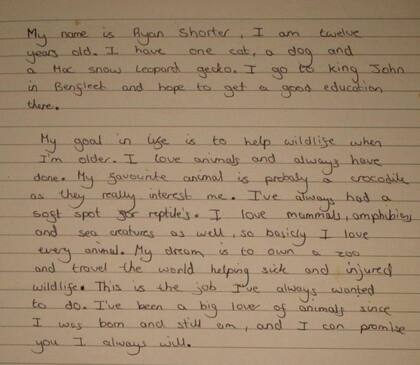 My name is Ryan Shorter, I am twelve
years old. I have one cat, a dog and
a Mac snow leopard gecko. I go to king John
in Benfleet and hope to get a good education
there.
My goal in life is to help wildlife when
I'm older. I love animals and always have
done. My favourite animal is probaly a crocodile
as they really interest me. I've always had a
soft spot for reptile's. I love mammals, amphibians
and sea creatures as well, so basicly I love
every animal. My dream is to own a zoo
and travel the world helping sick and injured
wildlife. This is the job I've always wanted
to do. I've been a big lover of animals since
I was born and still am, and I can promise
you I always will.